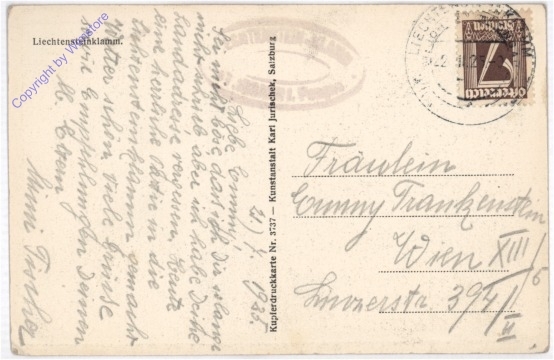 Liechtensteinklamm.
Copyright by Wehrstore
21./7. 1925.
Liebe Emmy!
Sei nicht böse das ich Dir so lange
nicht schrieb aber ich habe Deine
Landadresse vergessen. Heute
eine herrliche Partie in die
Lichtensteinklamm gemacht
Wetter schön. Viele Grüsse
Empfehlungen Deinen
lb. Eltern
Mimi
Kupferdruckkarte Nr. 3737 — Kunstanstalt Karl Jurischek, Salzburg
LIECHTENSTEIN
Groschen
7
Österreich
Fräulein
Emmy Frankenstein
Wien XIII
Linzerstr. 394